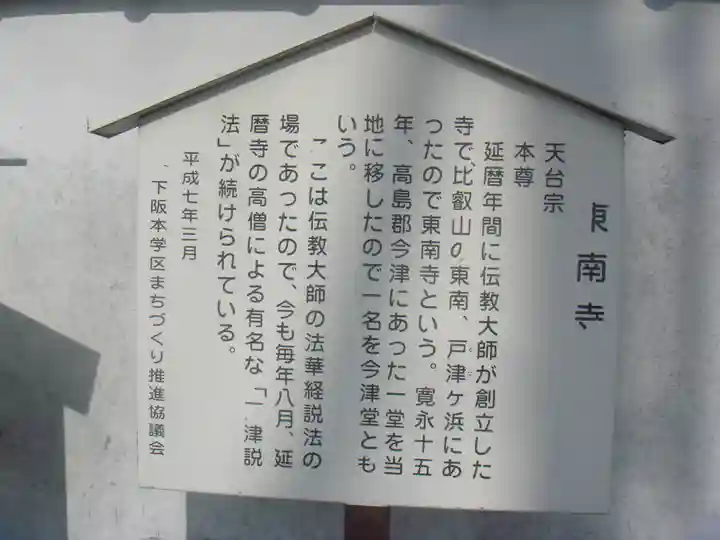 東南寺
天台宗
本尊
延暦年間に伝教大師が創立した
寺で、比叡山の東南、戸津ヶ浜にあ
ったので東南寺という。寛永十五
年、高島郡今津にあった一堂を当
地に移したので一名を今津堂とも
いう。
ここは伝教大師の法華経説法の
場であったので、今も毎年八月、延
暦寺の高僧による有名な「 津説
法」が続けられている。
平成七年三月
下阪本学区まちづくり推進協議会